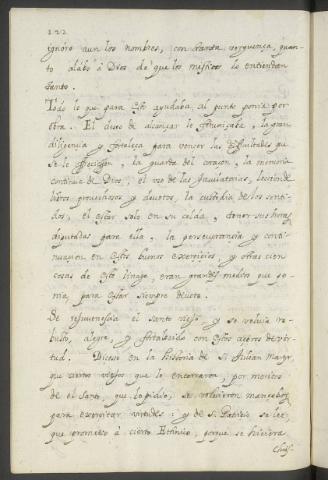 122
ignoro aun los nombres, con tanta verguença, quan-
to alabo à Dios de que los mesticos lo entiendan
tanto.
Todo lo que para esto ayudaba, al punto ponia por
obra. El deseo de alcançar lo atuniçaba, la gran
diligencia y fortaleça para vencer las dificultades que
se le ofrecian, la guarda del coraçon, la memoria
continua de Dios, el uso de las jaculatorias, leccion de
libros provechosos y devotos, la custodia de los senti-
dos, el estar solo en su celda, tener sus horas
diputadas para ella, la perseverancia y conti-
nuacion en estos buenos exercicios, y otras cien
cosas de este linage, eran grandes medios que po-
nia, para estar siempre devoto.
Se rejuvenecia el santo viejo, y se veia ro-
busto, alegre, y fortalecido con estos aceros de vir-
tud. Dicese en la Historia de S. Julian martyr
que ciertos viejos que lo enterraron, por meritos
de el santo, que lo pidio, se volvieron mancebos
para exercitar virtudes: y de S. Patricio se lee,
que prometio à cierto Ethnico, porque se hiciera
Chris